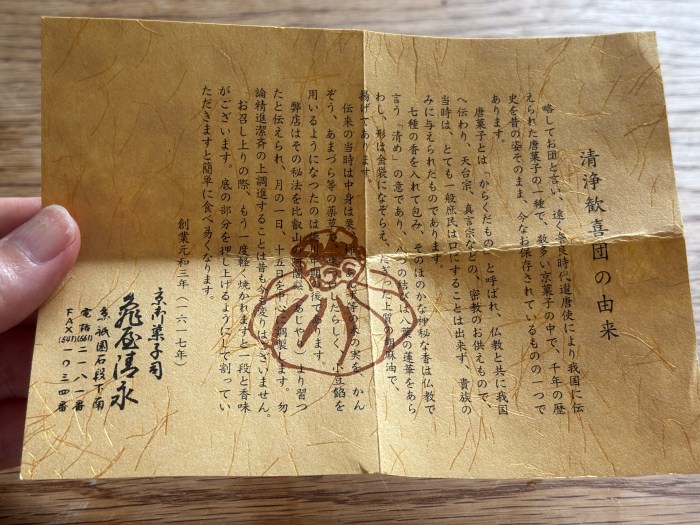 清浄歓喜団の由来
略してお団と言い、遠く奈良時代遣唐使により我国に伝
えられた唐菓子の一種で、数多い京菓子の中で、千年の歴
史を昔の姿そのまま、今なお保存されているものの一つで
あります。
唐菓子とは「からくだもの」と呼ばれ、仏教と共に我国
へ伝わり、天台宗、真言宗などの、密教のお供えもので、
当時は、とても一般庶民は口にすることは出来ず、貴族の
みに与えられたものであります。
七種の香を入れて包み、そのほのかな神秘な香は仏教で
言う「清め」の意であり、八つの結びは、八葉の蓮華をあら
わし、形は金袋になぞらえ、たぎった上質の胡麻油で、
揚げてあります。
伝来の当時は中身は栗、柿、あんず等の木の実を、かん
ぞう、あまづら等の薬草で味つけしたらしく、小豆餡を
用いるようになつたのは徳川中期以後であります。
弊店はその秘法を比叡山の阿闍梨（あじゃり）より習つ
たと伝えられ、月の一日、十五日を中心に調製します。勿
論精進潔斉の上調進することは昔も今も変りはございません。
お召し上りの際、もう一度軽く焼かれますと一段と香味
がございます。底の部分を押し上げるようにして割ってい
ただきますと簡単に食べ易くなります。
創業元和三年（一六一七年）
京御菓子司
亀屋清永
京祇園石段下南
電話(561)二一八一番
FAX(541)一〇三四番